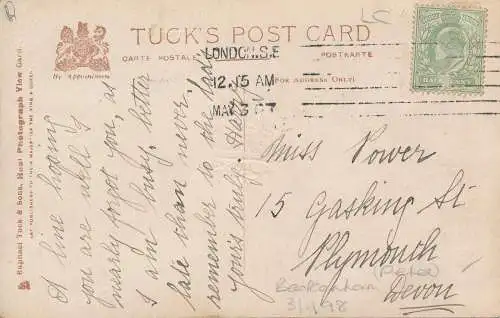 TUCK'S POST CARD
CARTE POSTALE
POSTKARTE
By Appointment
(FOR ADDRESS ONLY)
LONDON.S.E
12.15 AM
MAY 3 07
Raphael Tuck & Sons, Real Photograph View Card.
ART PUBLISHERS TO THE KING & QUEEN
A line hoping
you are well I
nearly forgot you, as
I am busy, better
late than never,
remember to the lads
yours truly. Harry
Miss Power
15 Gasking St
Plymouth
Devon
(Peter)
3/9/98
LC